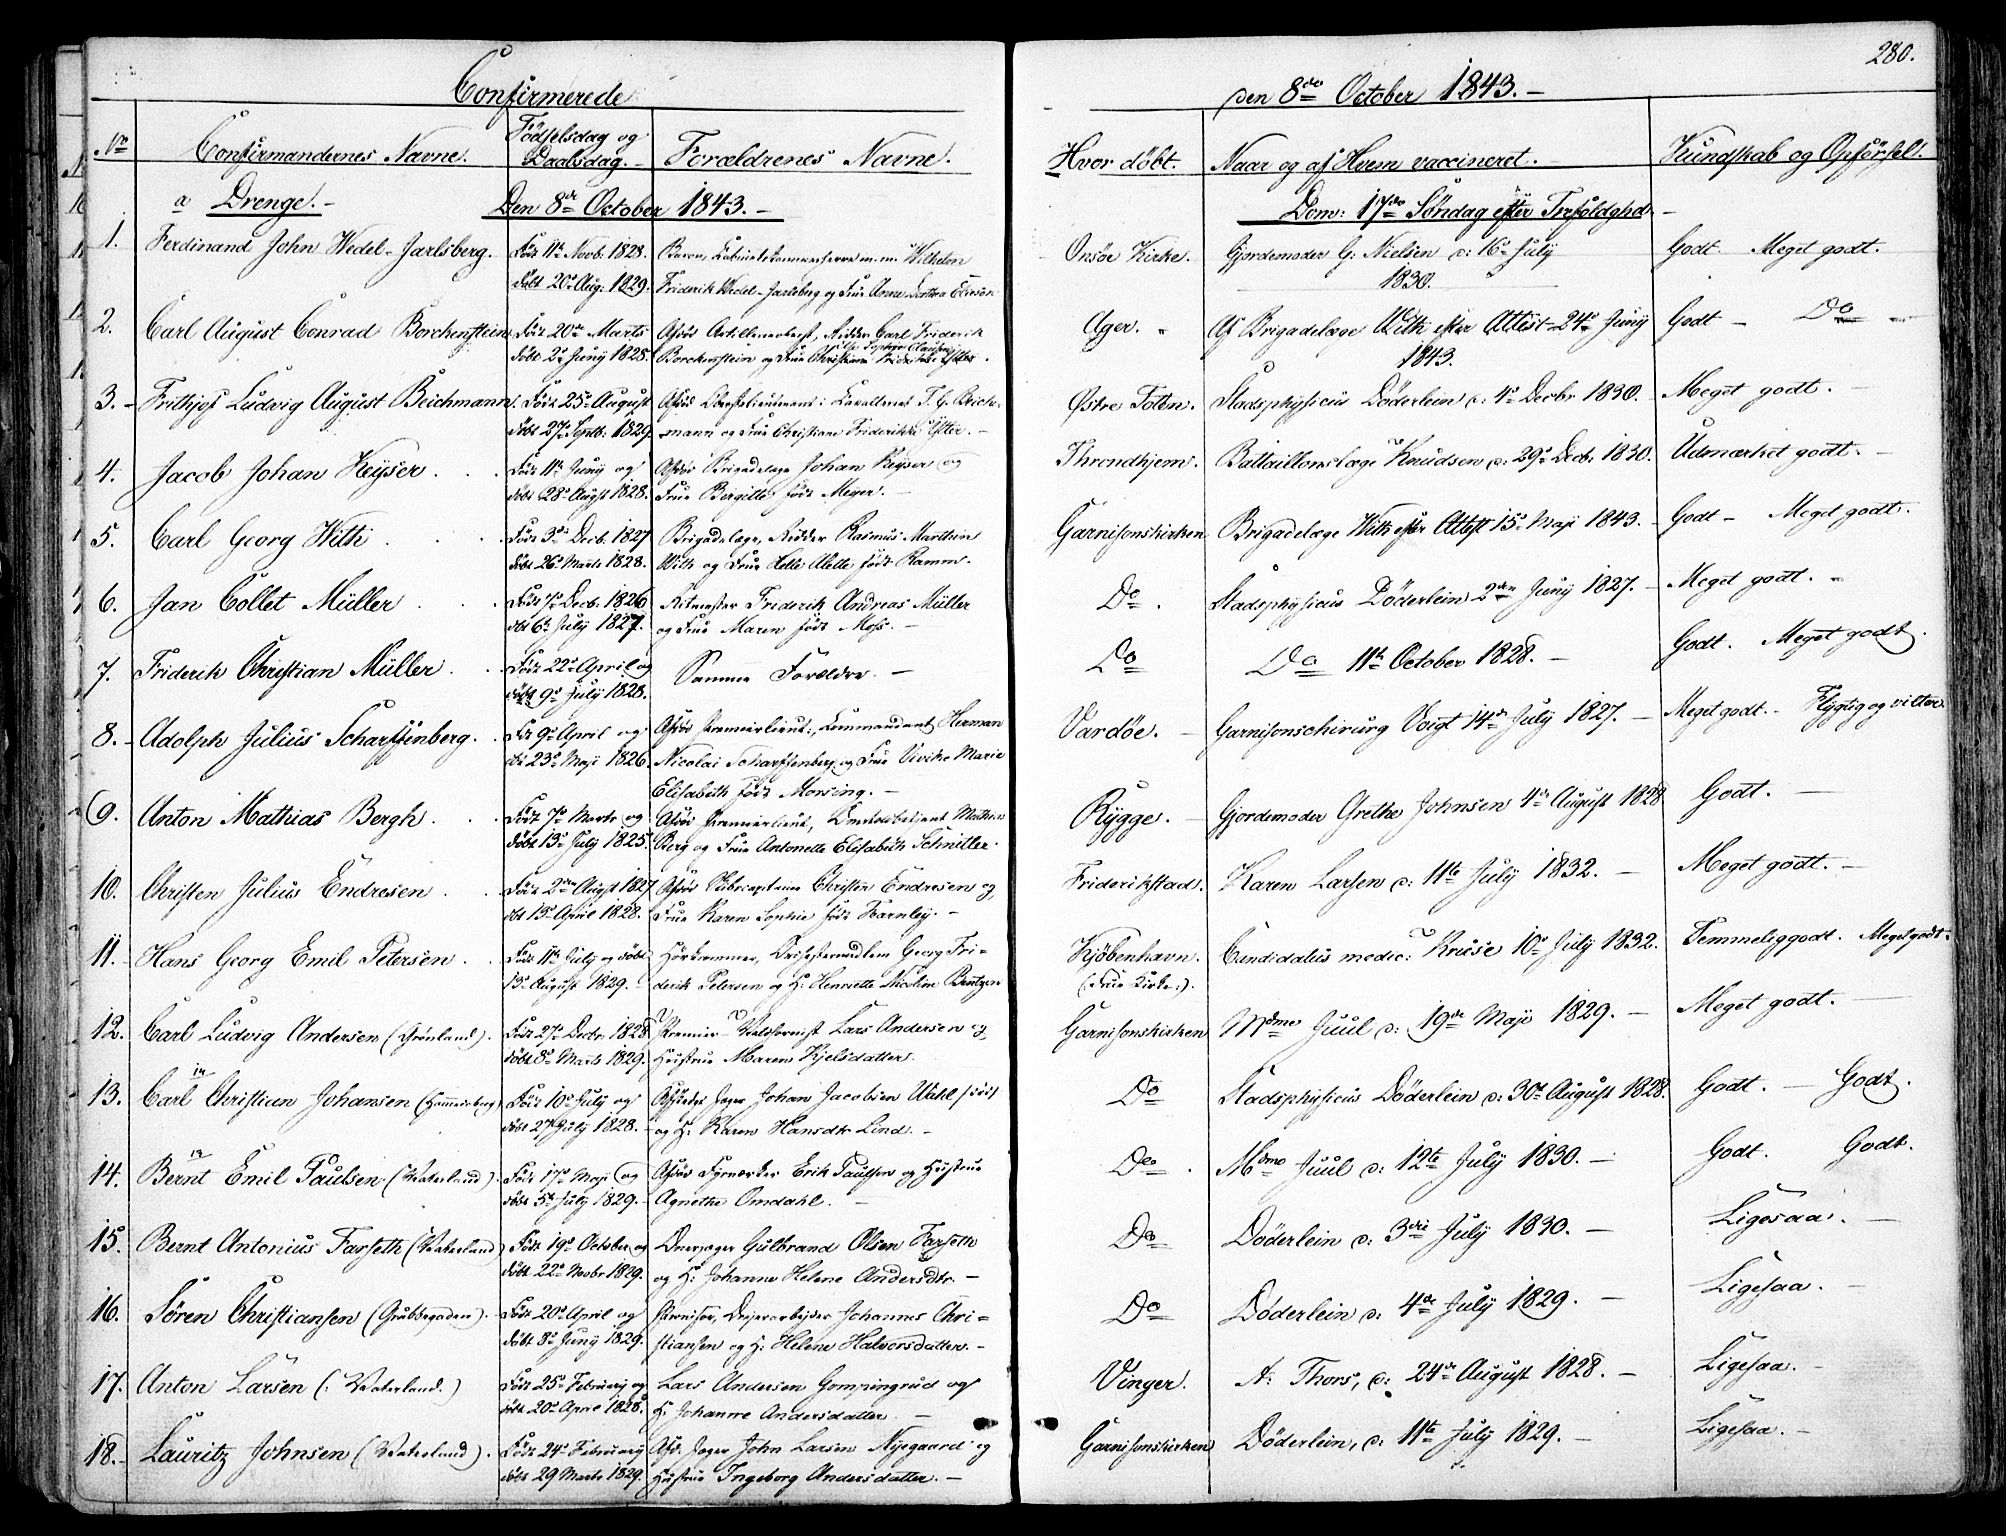 280.
Confirmerede
den 8de October 1843. -
No
Confirmandernes Navne.
Fødselsdag og
Daabsdag.
Forældrenes Navne.
Hvor døbt.
Naar og af Hvem vaccineret.
Kundskab og Opførsel.
a Drenge. -
Den 8de October 1843. -
Dom: 17de Søndag efter
1. Ferdinand John Wedel-Jarlsberg.
Født 11te Novb. 1828.
døbt 20de Aug: 1829.
Baron, m.m. Wilhelm
Friderik Wedel-Jarlsberg og Frue Anne
Onsøe Kirke.
Gjordemoder G: Nielsen d: 16de July
1830.
Godt. Meget godt.
2. Carl August Conrad Borchenstein
Født 20de Marts
døbt 2de Juny 1828.
Ridder Carl Friderik
Borchenstein og Frue Christiane
Ager.
Af Brigadelæge With efter Attest 24de Juny
1843.
Godt - Do
3. Frithjof Ludvig August Beichmann.
Født 25de August
døbt 27de Septb: 1829.
Afdød Oberstlieutenant i Cavalleriet F. C. Beich-
mann og Frue Christiane Friderikke
Østre Toten.
Stadsphysicus Døderlein d: 4de Decbr 1830.
Meget godt.
4. Jacob Johan Keyser.
Født 11te Juny og
døbt 28de Augst 1828.
Afdød Brigadelæge Johan Keyser og
Frue Bergitte født Meyer. -
Throndhjem.
Battaillonslæge Knudsen d: 29de Decb: 1830.
Udmærket godt. -
5. Carl Georg With
Født 3die Decb. 1827
døbt 26de Marts 1828.
Brigadelæge, Ridder Rasmus Marthin
With og Frue Helle Mette født Ramm.
Garnisonskirken
Brigadelæge With efter Attest 15de Maji 1843. -
Godt - Meget godt.
6. Jan Collet Müller
Født Decb: 1826
døbt 6te July 1827.
Ritmester Friderik Andreas Müller
og Frue Maren født Moss. -
Do
Stadsphysicus Døderlein 2den Juny 1827. -
Meget godt.
7. Friderik Christian Müller
Født 22de April og
døbt 9de July 1828.
Samme Forældre. -
Do
Do 11te October 1828. -
Godt. Meget godt.
8. Adolph Julius Scharffenberg.
Født 9de April og
døbt 23de Maji 1826.
Afdød Premierlieut:, Commandant Herman
Nicolai Scharffenberg og Frue Vivike Marie
Elisabeth født Monsing. -
Vardøe. -
Garnisonschirurg Voigt 14de July 1827. -
Meget godt. - Flygtig og
9. Anton Mathias Bergh.
Født 7de Marts og
døbt 13de July 1825.
Afdød Premierlieut, Mathias
Berg og Frue Antonette Elisabeth Schnitler.
Rygge. -
Gjordemoder Grethe Johnsen 4de August 1828
Godt. -
10. Christen Julius Endresen
Født 2den Augst 1827
døbt 13de April 1828.
Afdød Skibscaptein Christen Endresen og
Frue Karen Sophie født Farnley. -
Friderikstad.
Karen Larsen d: 11te July 1832. -
Meget godt. -
11. Hans Georg Emil Petersen
Født 11te July og døbt
13de August 1829.
Georg Fri-
derik Petersen og H: Henriette Bentzen
Kjøbenhavn.
(Frue Kirke:).
Candidatus medic: Kruse 10de July 1832.
Temmeliggodt. Megetgodt.
12. Carl Ludvig Andersen (Grønland).
Født 27de Decbr 1828
døbt 8de Marts 1829.
Lars Andersen og
Hustrue Maren Kjelsdatter.
Garnisonskirken
Mdme Juul d: 19de Maji 1829. -
Meget godt.
13. Carl Christian Johansen (Hammersborg)
Født 10de July og
døbt 27de July 1828.
Jæger Johan Jacobsen
og H: Karen Hansdtr Lind. -
Do
Stadsphysicus Døderlein d: 30te August 1828.
Godt. - Godt.
14. Bernt Emil Paulsen (Vaterland).
Født 17de Maji og
døbt 5te July 1829.
Afdød Erik Paulsen og Hustrue
Agnethe Omdahl. -
Do
Mdme Juul d: 12te July 1830. -
Godt. Godt.
15. Bernt Antonius Farseth (Vaterland)
Født 19de October og
døbt 22de Novbr 1829.
Gulbrand Olsen Farseth
og H: Johanne Helene Andersdtr. -
Do
Døderlein d: 3die July 1830. -
Ligesaa. -
16. Søren Christiansen (Grubbegaden).
Født 20de April og
døbt 8de Juny 1829.
Johannes Chri-
stiansen og H: Helene Halvorsdatter. -
Do
Døderlein d: 4de July 1829. -
Ligesaa. -
17. Anton Larsen (: Vaterland.)
Født 25de Februarij og
døbt 20de April 1828.
Lars Andersen Gompingrud og
H: Johanne Andersdatter. -
Vinger.
A: Thors, d: 24de August 1828. -
Ligesaa. -
18. Lauritz Johnsen (Vaterland).
Født 24de Februarij
døbt 29 Marts 1829.
Afd. Jæger John Larsen Nyegaard og
Hustrue Ingeborg Andersdatter. -
Garnisonskirken
Døderlein, d: 11te July 1829. -
Ligesaa. -